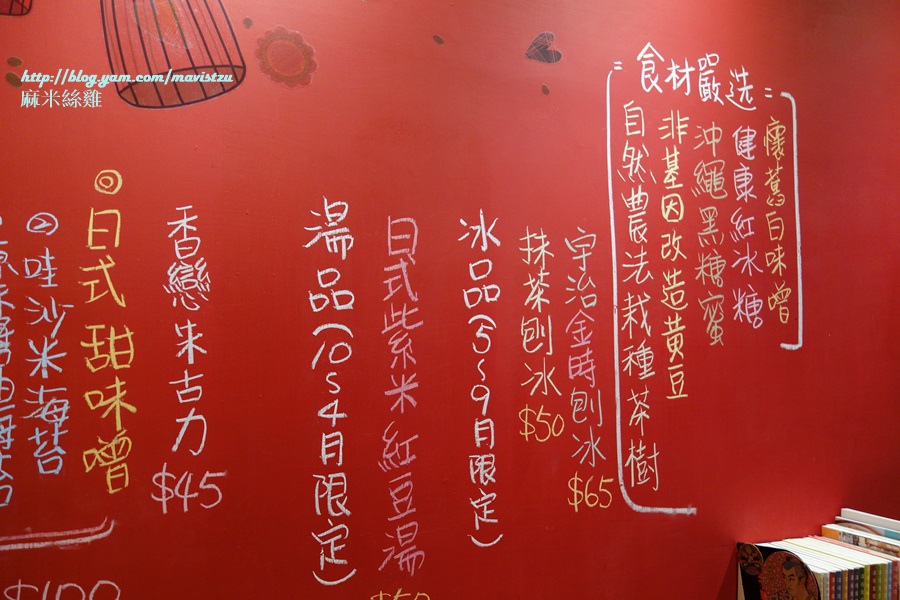 http://blog.yam.com/mavistzu
麻米絲雞
=食材嚴选=
懷舊白味噌
健康紅冰糖
沖繩黑糖蜜
非基因改造黃豆
自然農法栽種茶樹
宇治金時刨冰
$65
抹茶刨冰
$50
冰品(5~9月限定)
日式紫米紅豆湯
湯品(10~4月限定)
香戀朱古力
$45
◎日式甜味噌
②哇沙米海苔
$100